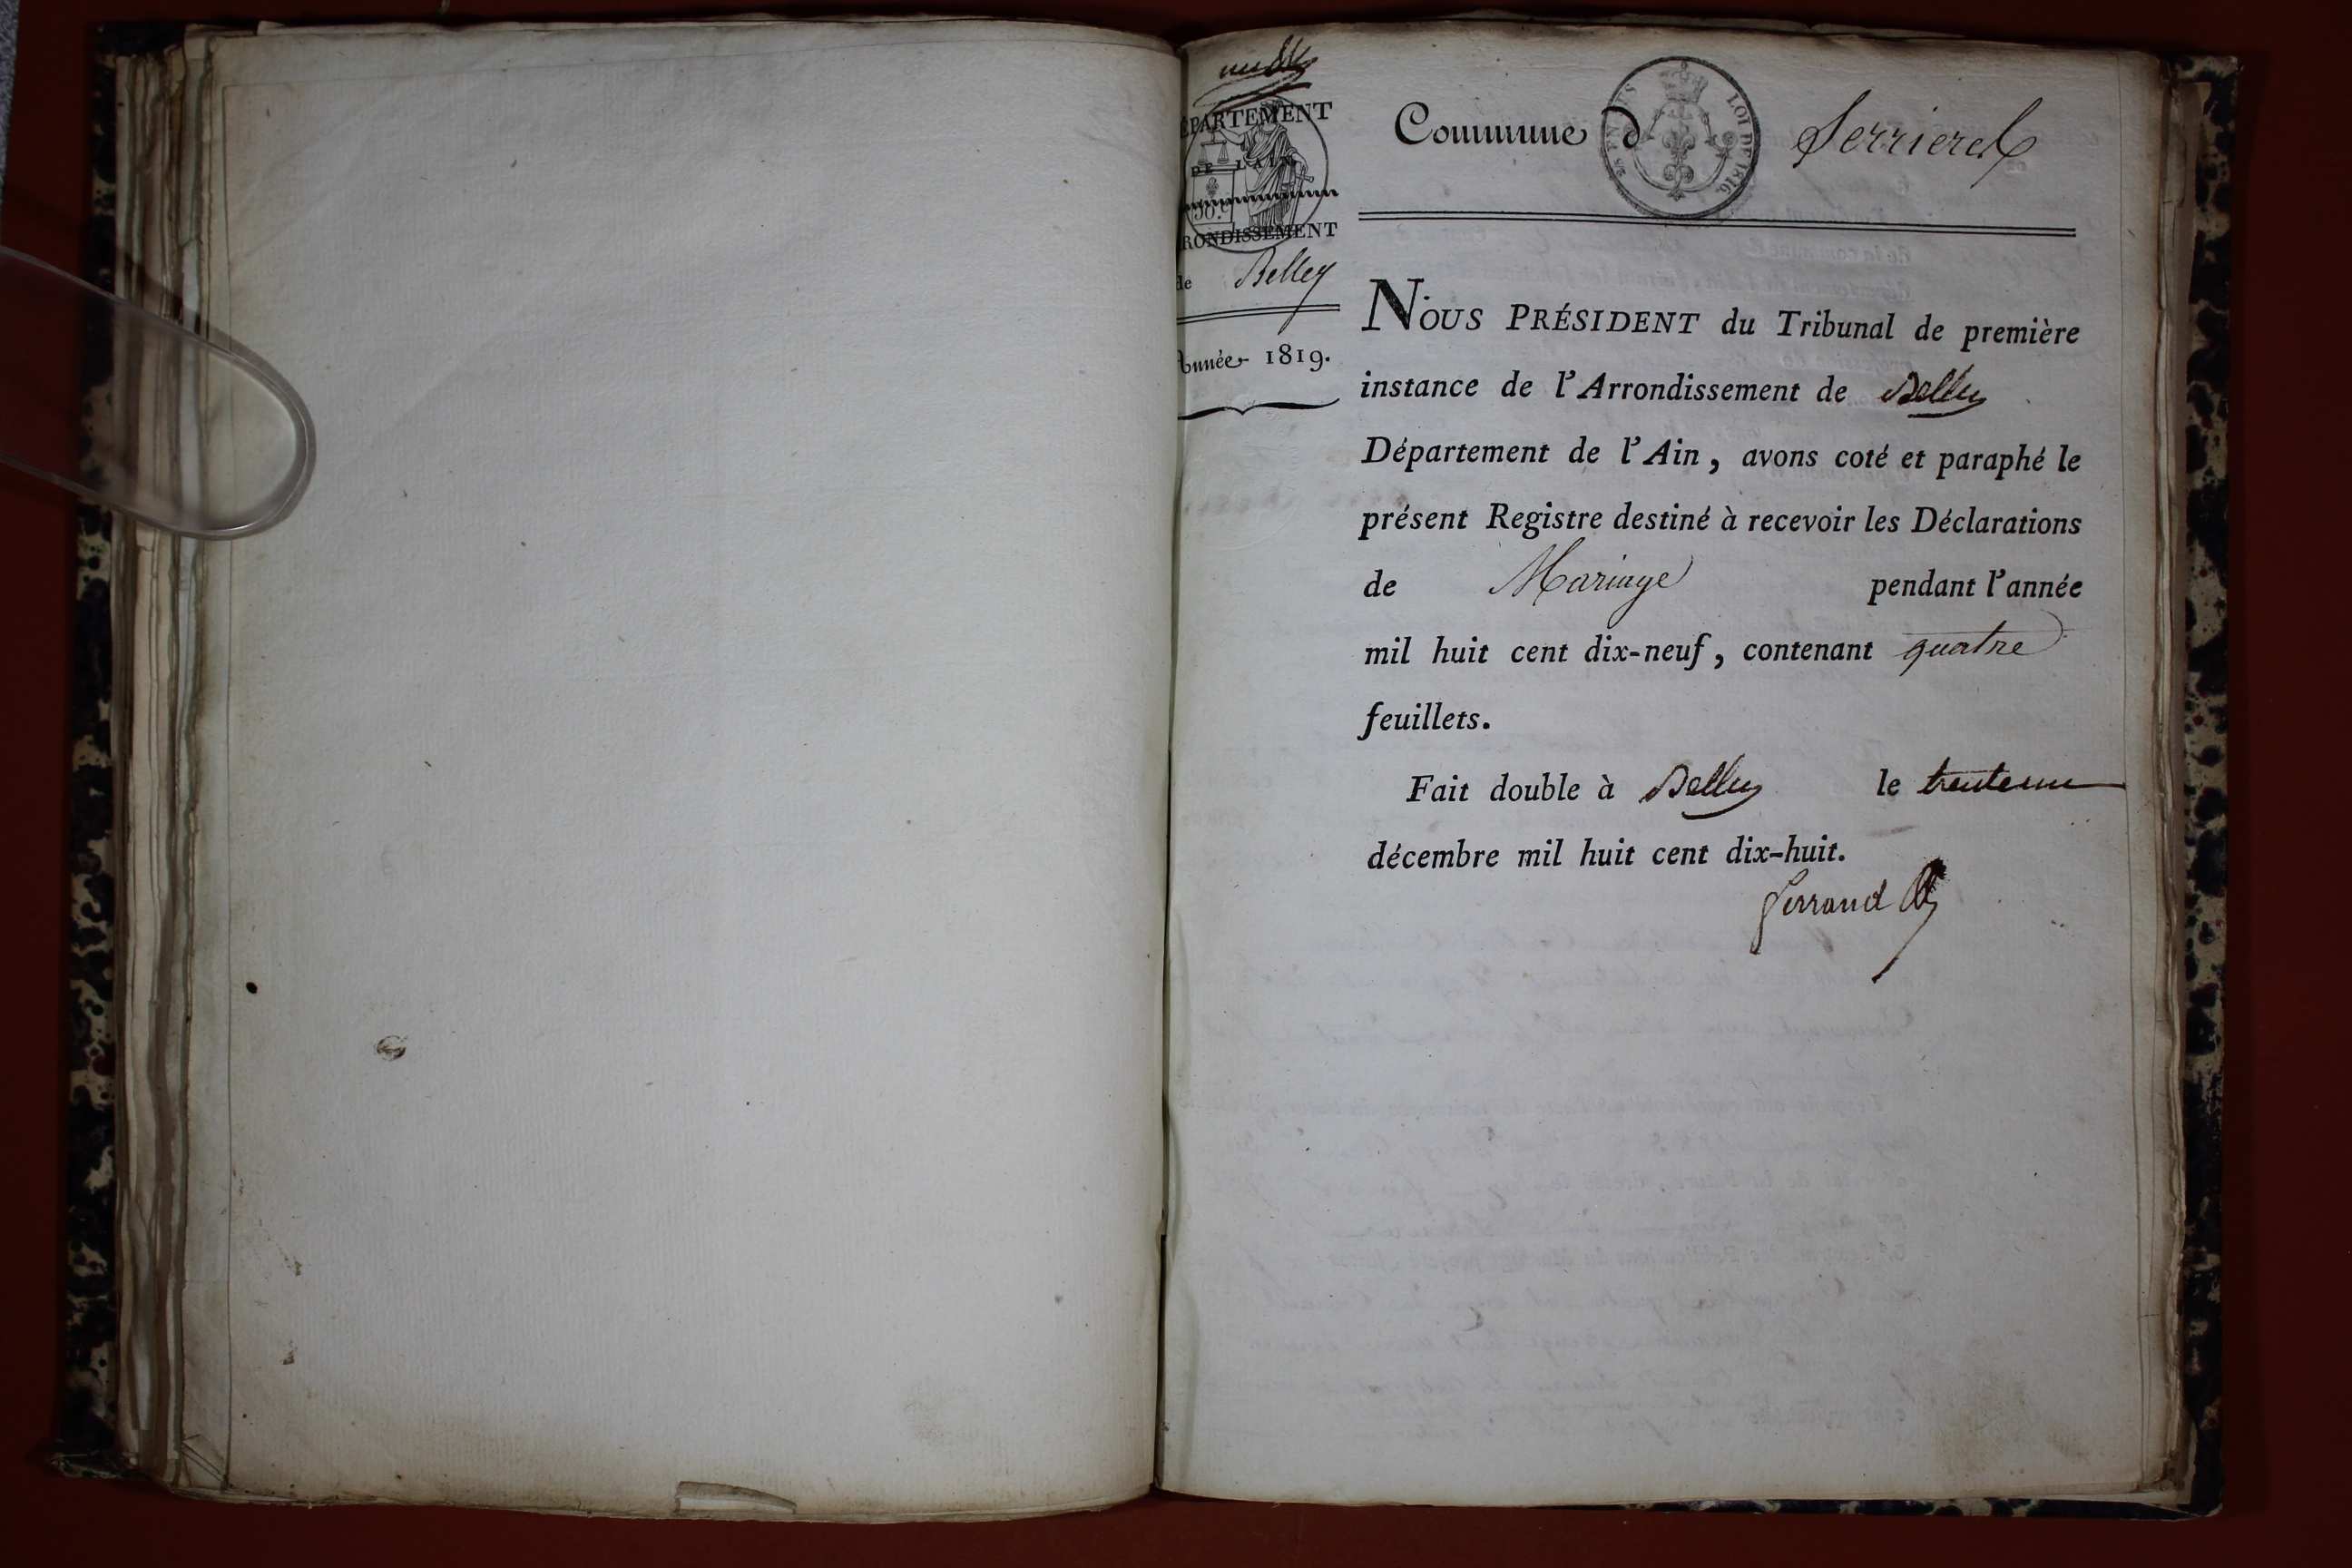 DÉPARTEMENT
DE L'AIN
ARRONDISSEMENT
de Belley
Année 1819.
Commune d Serrieres
LOI DE 1816.
NOUS PRÉSIDENT du Tribunal de première
instance de l'Arrondissement de Belley
Département de l'Ain, avons coté et paraphé le
présent Registre destiné à recevoir les Déclarations
de Mariage pendant l'année
mil huit cent dix-neuf, contenant quatre
feuillets.
Fait double à Belley le trente un
décembre mil huit cent dix-huit.